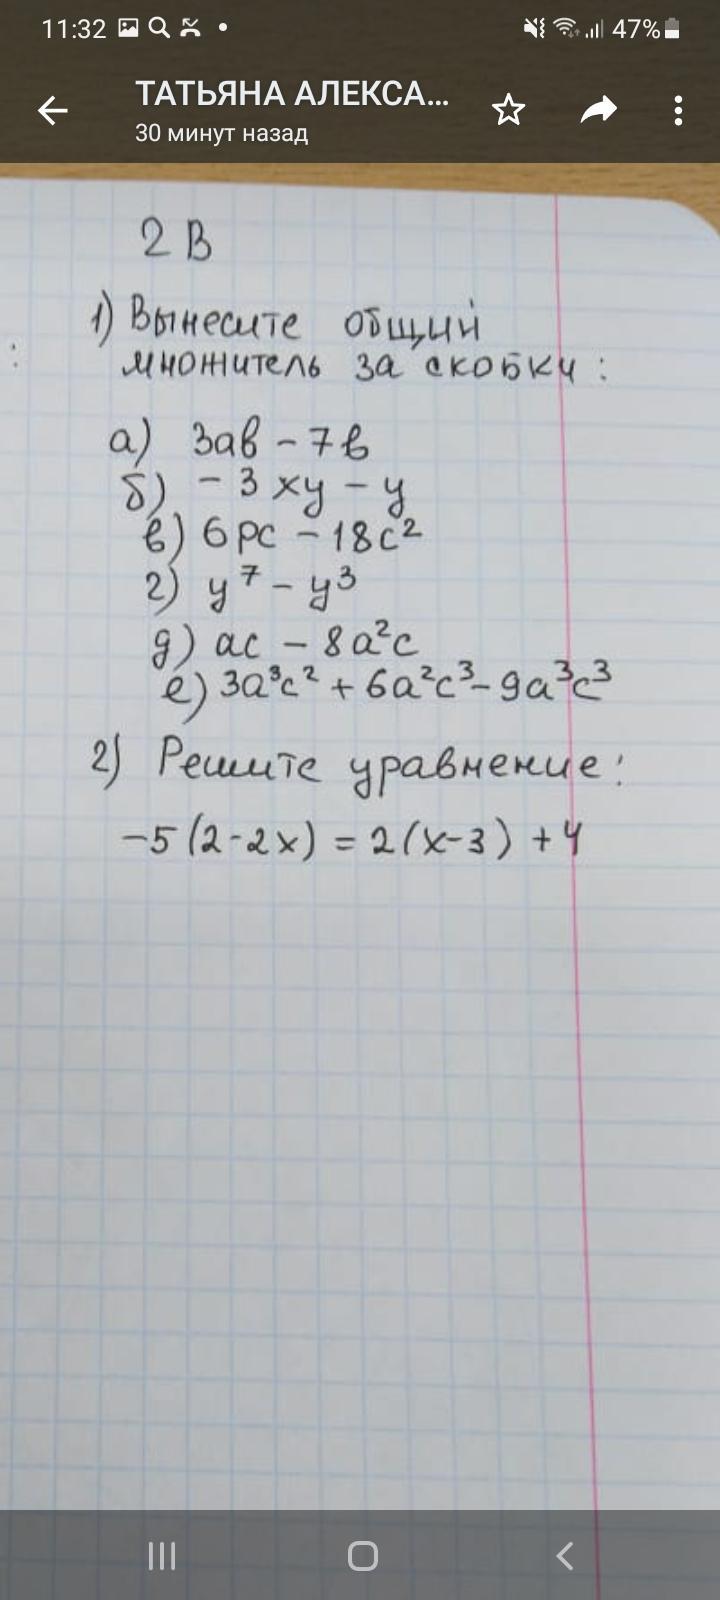 11:32
47%
ТАТЬЯНА АЛЕКСА...
30 минут назад
2 В
1) Вынесите общий
множитель за скобку :
а) 3ав - 7в
б) - 3xy - y
в) 6pc - 18c²
г) y⁷ - y³
д) ac - 8a²c
е) 3a³c² + 6a²c³ - 9a³c³
2) Решите уравнение :
-5(2-2x) = 2(x-3) + 4